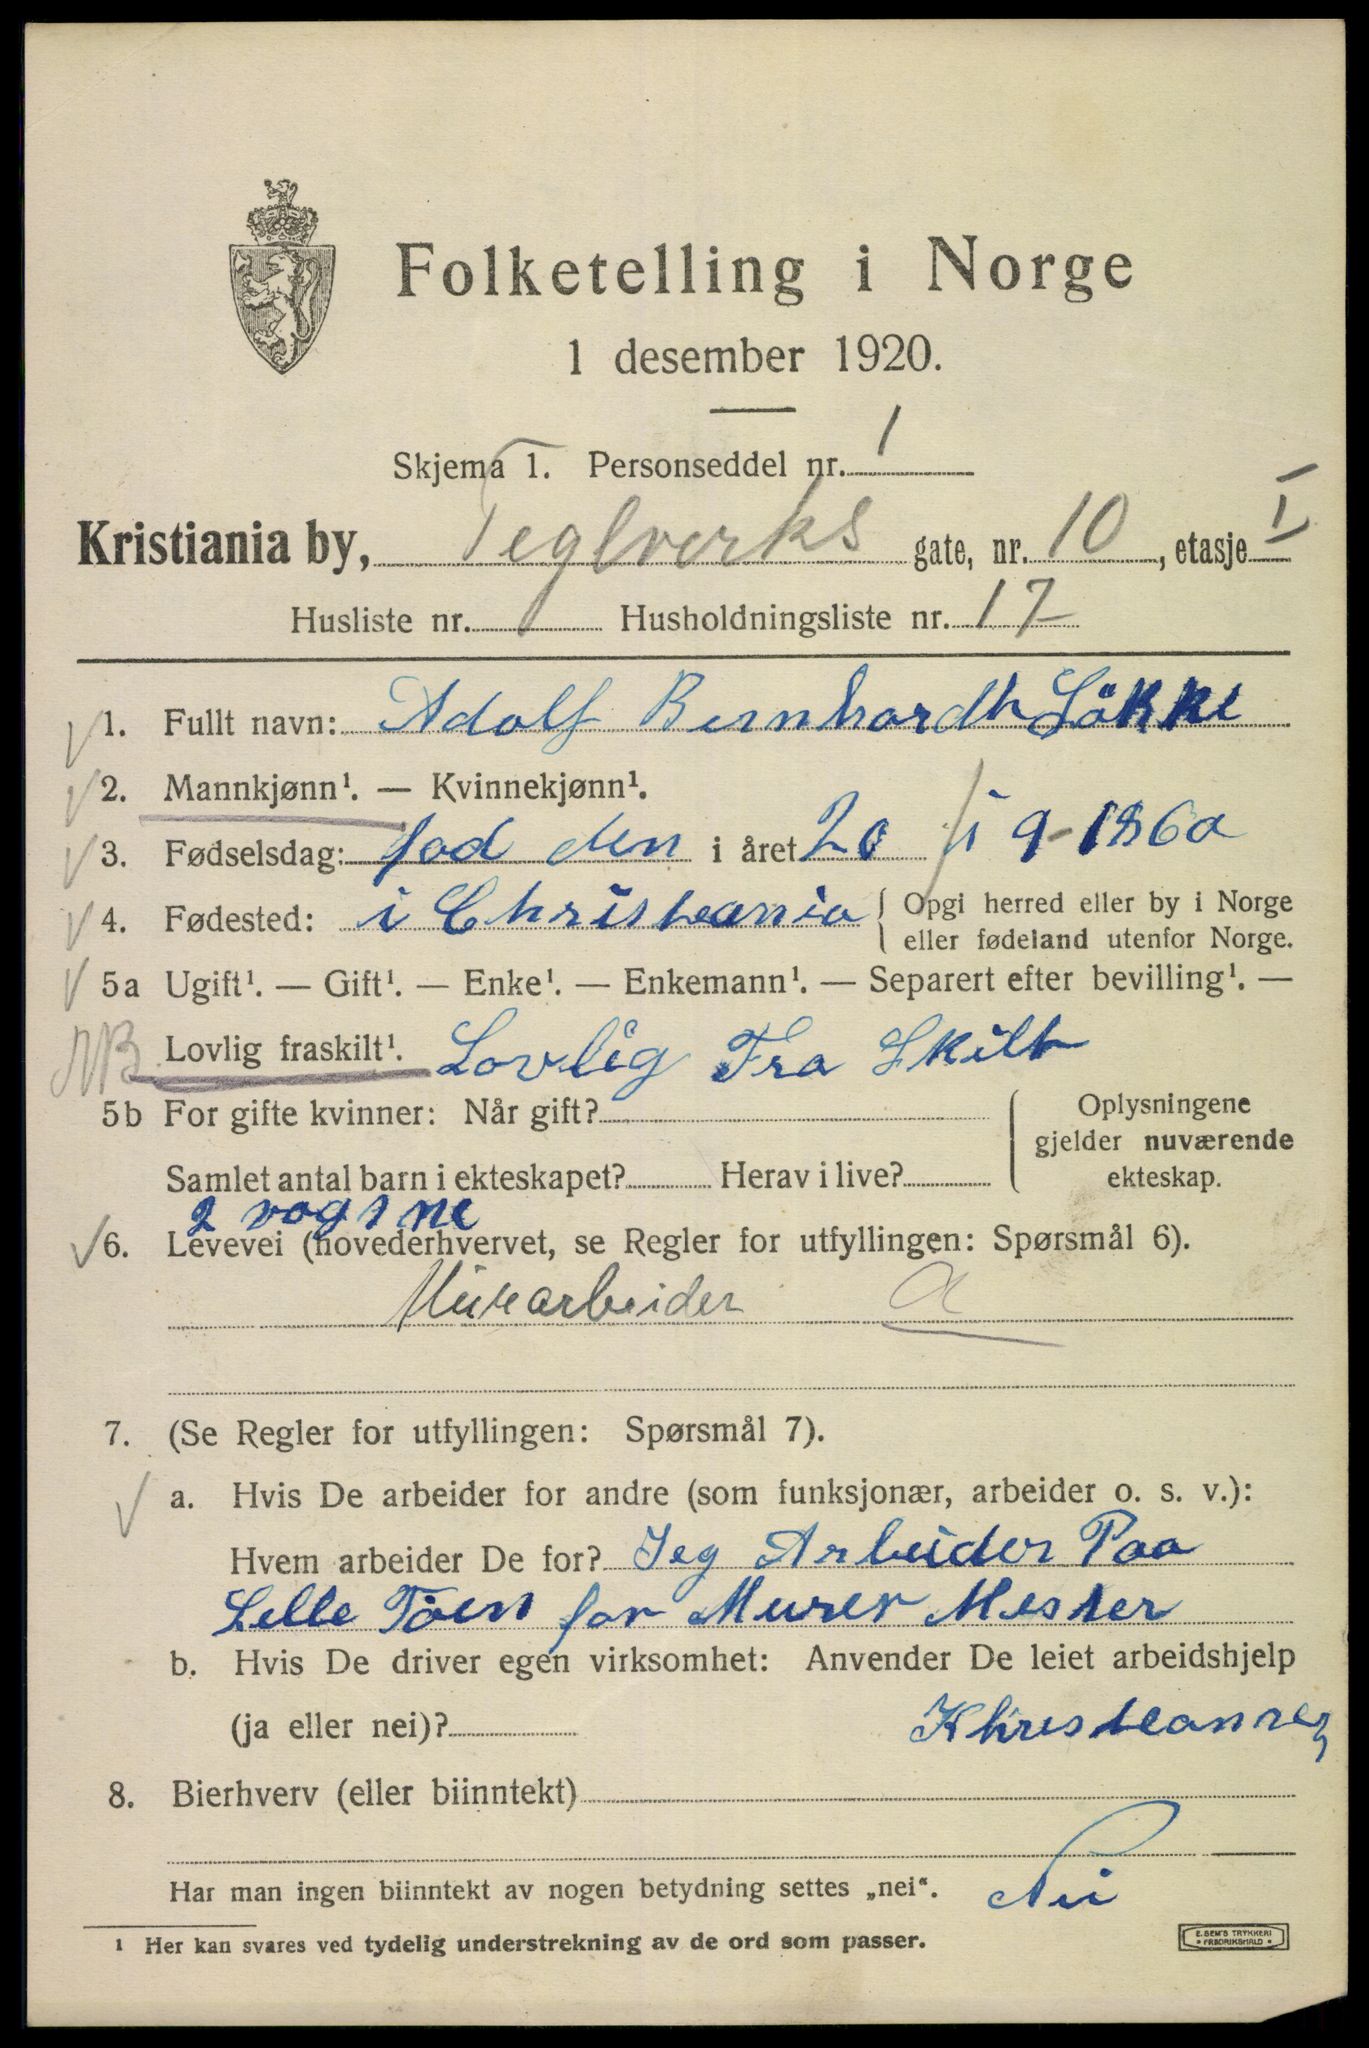 Folketelling i Norge
1 desember 1920.
Skjema 1. Personseddel nr. 1
Kristiania by, Teglverks gate, nr. 10, etasje I
Husliste nr. Husholdningsliste nr. 17
1. Fullt navn: Adolf Bernhardh Lökke
2. Mannkjønn¹. — Kvinnekjønn¹.
3. Fødselsdag: fød den i året 20 / i 9-1860
4. Fødested: i Christeania { Opgi herred eller by i Norge
eller fødeland utenfor Norge.
5a Ugift¹. — Gift¹. — Enke¹. — Enkemann¹. — Separert efter bevilling¹. —
NB Lovlig fraskilt¹. Lovlig Fra Skilt
5b For gifte kvinner: Når gift? { Oplysningene
gjelder nuværende
Samlet antal barn i ekteskapet? Herav i live? ekteskap.
2 vogsne
6. Levevei (hovederhvervet, se Regler for utfyllingen: Spørsmål 6).
Murarbeider a
7. (Se Regler for utfyllingen: Spørsmål 7).
a. Hvis De arbeider for andre (som funksjonær, arbeider o. s. v.):
Hvem arbeider De for? Jeg Arbeider Paa
Lelle Töen for Murer Mester
b. Hvis De driver egen virksomhet: Anvender De leiet arbeidshjelp
(ja eller nei)? Khresteansen
8. Bierhverv (eller biinntekt)
Har man ingen biinntekt av nogen betydning settes „nei“. Nei
¹ Her kan svares ved tydelig understrekning av de ord som passer.
E. SEM'S TRYKKERI
* FREDRIKSHALD *